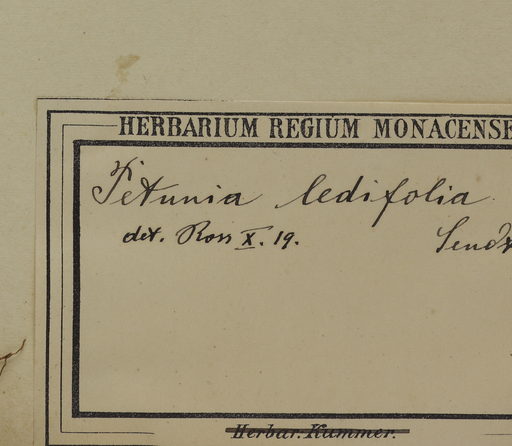 HERBARIUM REGIUM MONACENSE
Petunia ledifolia
det. Ross X. 19.
Sendt
Herbar. Kummer.